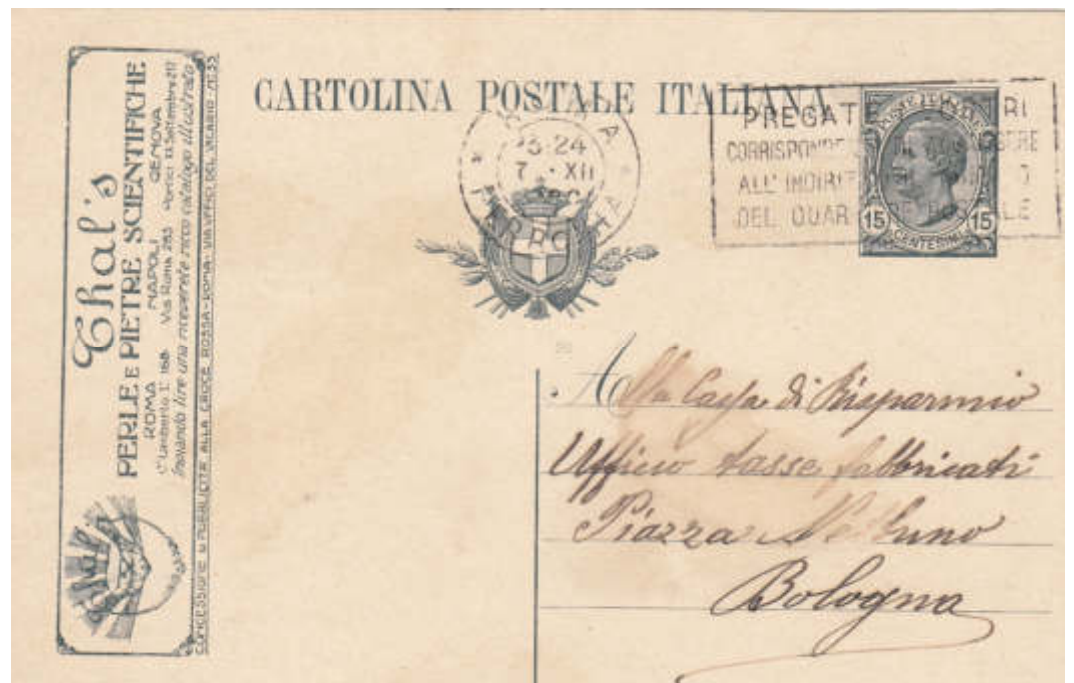 CARTOLINA POSTALE ITALIANA
Chal's
PERLE E PIETRE SCIENTIFICHE
ROMA NAPOLI GENOVA
C. Umberto I. 168 Via Roma 253 Portici XX Settembre 217
inviando lire una riceverete ricco catalogo illustrato
CONCESSIONE DI PUBBLICITÀ ALLA CROCE ROSSA - ROMA - VIA UFFICI DEL VICARIO
Chal's
24
7 XII
PREGATE
CORRISPONDE
ALL' INDIRI
DEL QUAR
15 15
CENTESIMI
Alla Cassa di Risparmio
Ufficio tasse fabbricati
Piazza Nettuno
Bologna